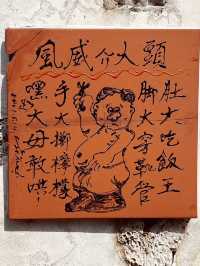 頭大介威風
肚大吃飯王
脚大穿靴管
手大擲檸檬
嘿大母敢哄